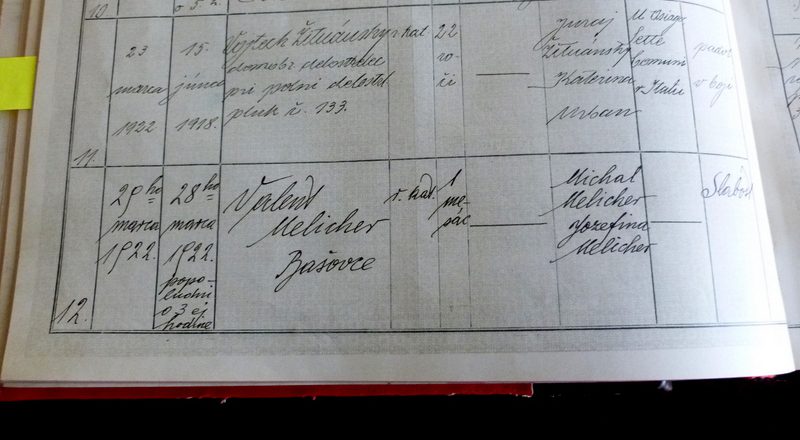 10
o 5. r.
23
marca
1922
15.
júna
1918.
Vojtech Žitňánsky
domobr. delostrelec
pri poľní delostrel
pluk č. 133.
r. kat
22
ro-
čí
Juraj
Žitňánský
Katerína
Urban
M. Asiago
Sette
comuni
v Italii
padol
v boji
11.
29ho
marca
1922.
28ho
marca
1922.
popo-
ludní
o 3 ej
hodine
Valent
Melicher
Bašovce
r. kat.
1
me-
sác
Michal
Melicher
Jozefina
Melicher
Slabosť
12.